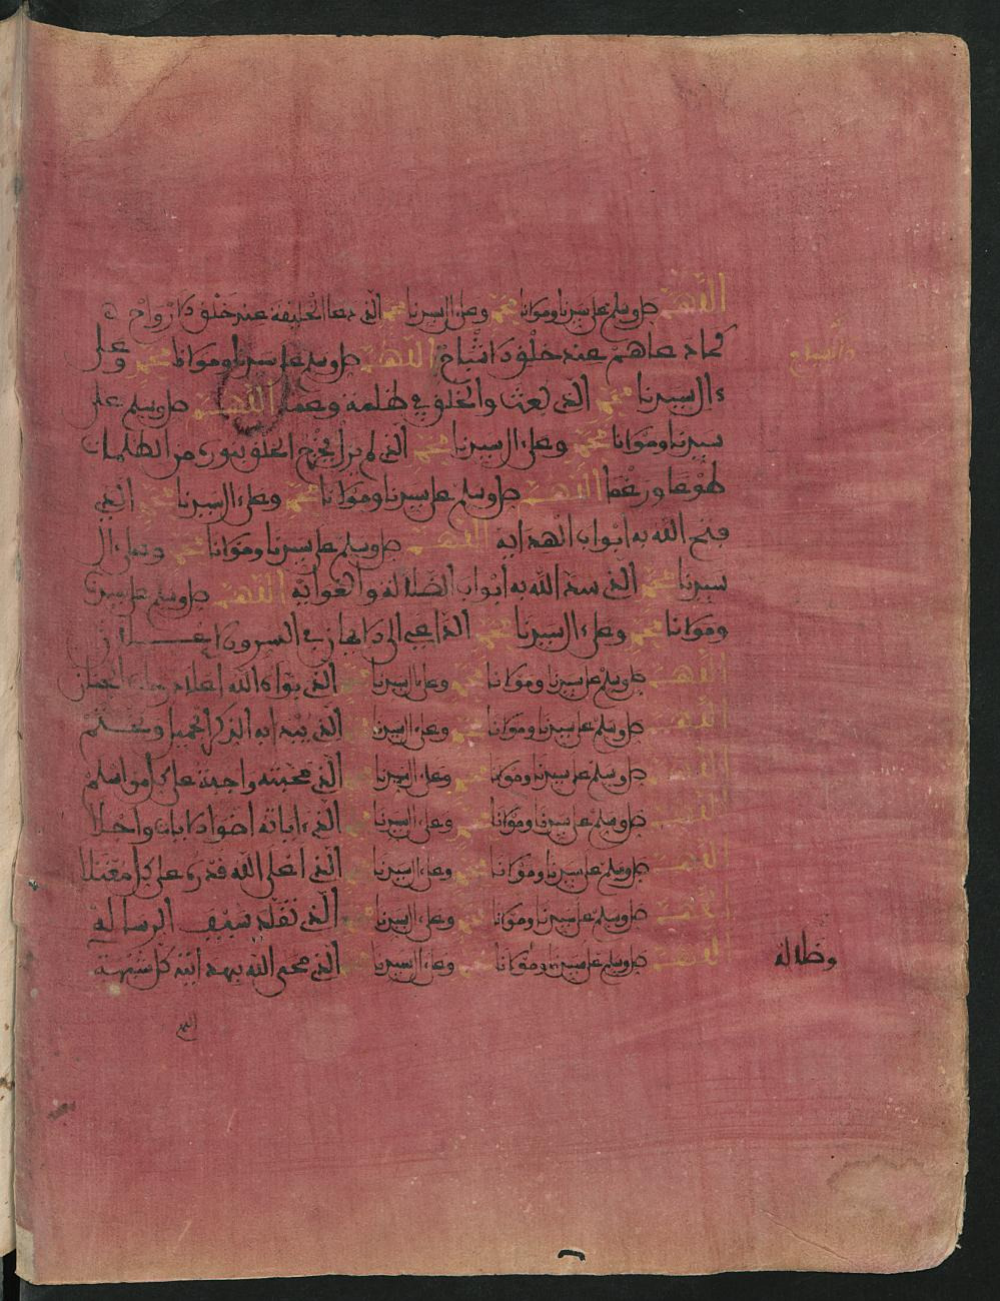 اللهم صل وسلم على سيدنا ومولانا محمد وعلى ءال سيدنا محمد الذي دعا الخليفة عند خلق الارواح
كما دعاهم عند خلق الاشباح اللهم صل وسلم على سيدنا ومولانا محمد وعلى
ءال سيدنا محمد الذي بعث والخلق في ظلمة وعمه اللهم صل وسلم على
سيدنا ومولانا محمد وعلى ءال سيدنا محمد الذي لم يزل يخرج الخلق بنوره من الظلمات
طوعا ورغما اللهم صل وسلم على سيدنا ومولانا محمد وعلى ءال سيدنا محمد الذي
فتح الله به ابواب الهداية اللهم صل وسلم على سيدنا ومولانا محمد وعلى ءال
سيدنا محمد الذي سد الله به ابواب الضلالة والغواية اللهم صل وسلم على سيدنا
ومولانا محمد وعلى ءال سيدنا محمد الداعي الى الايمان في السر والاعلان
اللهم صل وسلم على سيدنا ومولانا محمد وعلى ءال سيدنا محمد الذي بواه الله اعلا
اللهم صل وسلم على سيدنا ومولانا محمد وعلى ءال سيدنا محمد الذي يبدا به الذكر الجميل ويختم
اللهم صل وسلم على سيدنا ومولانا محمد وعلى ءال سيدنا محمد الذي محبته واجبة على كل من اسلم
اللهم صل وسلم على سيدنا ومولانا محمد وعلى ءال سيدنا محمد الذي ءاياته اضوا الايات واجلا
اللهم صل وسلم على سيدنا ومولانا محمد وعلى ءال سيدنا محمد الذي اعلى الله قدره على كل
اللهم صل وسلم على سيدنا ومولانا محمد وعلى ءال سيدنا محمد الذي تقلد سيف الرسالة
اللهم صل وسلم على سيدنا ومولانا محمد وعلى ءال سيدنا محمد الذي محى الله بهدايته كل شبهة
وضلالة
اللهم